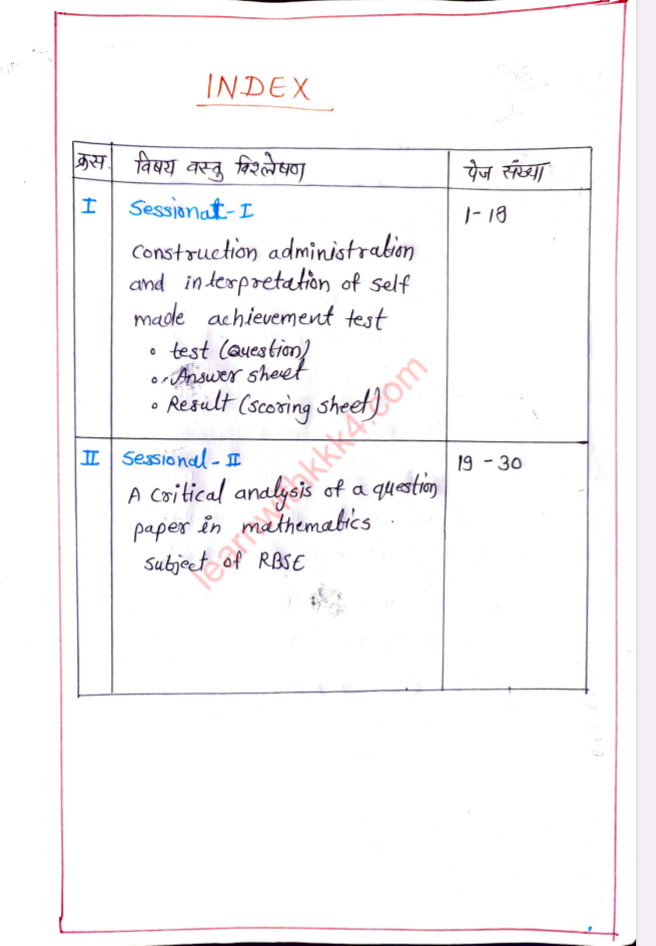 INDEX
क्रस. विषय वस्तु विश्लेषण पेज संख्या
I Sessional-I 1-18
Construction administration
and interpretation of self
made achievement test
• test (Question)
• Answer sheet
• Result (scoring sheet)
II Sessional-II 19-30
A critical analysis of a question
paper in mathematics
subject of RBSE
learnwithkkk4.com